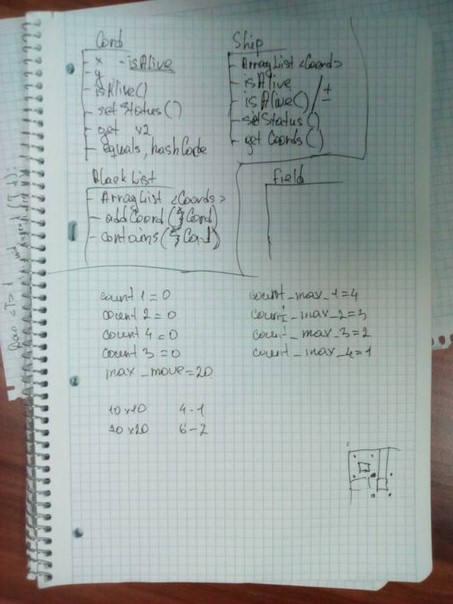 Cord
- x - isAlive
- y
- isAlive()
- setStatus()
- get x2
- equals, hashCode
Ship
- ArrayList <Coords>
- isAlive
- isAlive() / + -
- setStatus()
- get Coords()
BlackList
- ArrayList <Coords>
- addCoord( Cord)
- contains( Cord)
Field
count 1 = 0
count 2 = 0
count 4 = 0
count 3 = 0
max_move = 20
count_max_1 = 4
count_max_2 = 3
count_max_3 = 2
count_max_4 = 1
10x10 4-1
20 6-2